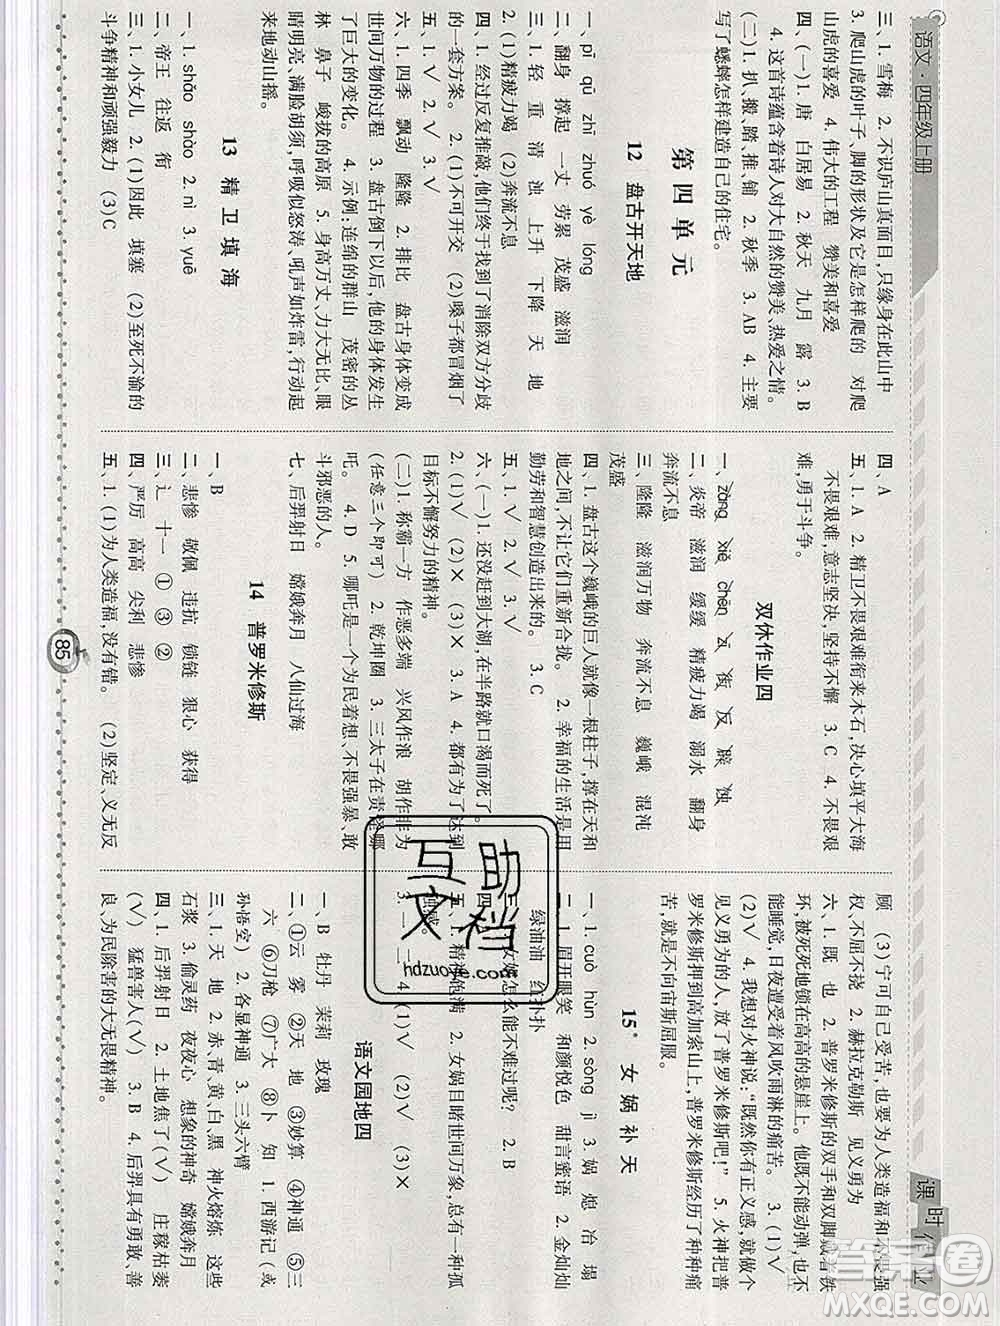 语文·四年级上册
三、1. 雪梅 2. 不识庐山真面目,只缘身在此山中
3. 爬山虎的叶子、脚的形状及它是怎样爬的 对爬
山虎的喜爱 4. 伟大的工程 赞美和喜爱
四、(一)1. 唐 白居易 2. 秋天 九月 露 3. B
4. 这首诗蕴含着诗人对大自然的赞美、热爱之情。
(二)1. 扒、搬、踏、推、铺 2. 秋季 3. AB 4. 主要
写了蟋蟀怎样建造自己的住宅。
第四单元
12 盘古开天地
一、pī qū zhī zhuó yè lóng
二、翻身 撑起 一丈 劳累 茂盛 滋润
三、1. 轻 重 清 浊 上升 下降 天 地
2. (1)精疲力竭 (2)奔流不息
四、1. 经过反复推敲,他们终于找到了消除双方分歧
的一套方案。 2. (1)不可开交 (2)嗓子都冒烟了
五、1. √ 2. √ 3. √
六、1. 四季 飘动 隆隆 2. 排比 盘古身体变成
世间万物的过程 3. 盘古倒下以后,他的身体发生
了巨大的变化。 4. 示例:连绵的群山 茂密的丛
林 鼻子 峻拔的高原 5. 身高万丈,力大无比,眼
睛明亮、满脸胡须,呼吸似怒涛,吼声如炸雷,行动起
来地动山摇。
13 精卫填海
一、1. shāo shào 2. nì 3. yuē
二、帝王 往返 衔
三、1. 小女儿 2. (1)因此 填塞 (2)至死不渝的
斗争精神和顽强毅力 (3)C
四、A
五、1. A 2. 精卫不畏艰难衔来木石,决心填平大海
不畏艰难,意志坚决,坚持不懈 3. C 4. 不畏艰
难,勇于斗争。
双休作业四
一、zàng xiè chēn 云 衔 反 躁 浊
二、炎帝 滋润 缓缓 精疲力竭 溺水 翻身
奔流不息
三、隆隆 滋润万物 奔流不息 巍峨 混沌
茂盛
四、1. 盘古这个巍峨的巨人就像一根柱子,撑在天和
地之间,不让它们重新合拢。 2. 幸福的生活是用
勤劳和智慧创造出来的。 3. C
五、1. √ 2. √ 3. √
六、(一)1. 还没赶到大湖,在半路就口渴而死了。
2. (1)√ (2)× (3)× 3. A 4. 都有为了达到
目标不懈努力的精神。
(二)1. 称霸一方 作恶多端 兴风作浪 胡作非为
(任意三个即可) 2. 乾坤圈 3. 三太子在责怪哪
吒。 4. D 5. 哪吒是一个为民着想、不畏强暴、敢
斗邪恶的人。
七、后羿射日 嫦娥奔月 八仙过海
14 普罗米修斯
一、B
二、悲惨 敬佩 违抗 锁链 狠心 获得
三、辶 十一 ① ③ ②
四、严厉 高高 尖利 悲惨
五、1. (1)为人类造福,没有错。 (2)坚定、义无反
顾 (3)宁可自己受苦,也要为人类造福和不畏强
权、不屈不挠 2. 赫拉克勒斯 见义勇为
六、1. 既 也 2. 普罗米修斯的双手和双脚戴着铁
环,被死死地锁在高高的悬崖上。他既不能动弹,也不
能睡觉,日夜遭受着风吹雨淋的痛苦。 3. (1)√
(2)√ 4. 我想对火神说:“既然你有正义感,就做个
见义勇为的人,放了普罗米修斯吧!” 5. 火神把普
罗米修斯押到高加索山上,普罗米修斯经历了种种痛
苦,就是不向宙斯屈服。
15* 女娲补天
一、1. cuò hùn 2. sòng jì 3. 娲 熄 冶 塌
二、1. 眉开眼笑 和颜悦色 甜言蜜语 2. 金灿灿
绿油油 红扑扑
三、1. 女娲怎么能不难过呢? 2. B
五、1. 精神饱满 2. 女娲目睹世间万象,总有一种孤
独感。
3. 一 二 4. (1)√ (2)×
语文园地四
一、B 牡丹 茉莉 玫瑰
二、①云 雾 ②天 地 ③妙算 ④神通 ⑤三
六 ⑥刀枪 ⑦广大 ⑧卜 知 1. 西游记(或
孙悟空) 2. 各显神通 3. 三头六臂
三、1. 天 地 2. 赤、青、黄、白、黑 神火熔炼 这些
石浆 3. 偷灵药 夜夜心 想象的神奇 嫦娥奔月
四、1. 后羿射日 2. 土地焦了(√) 庄稼枯萎
(√) 猛兽害人(√) 3. B 4. 后羿具有勇敢、善
良、为民除害的大无畏精神。
85
课时作业
hdzuoye.com
答案圈
MXQE.COM